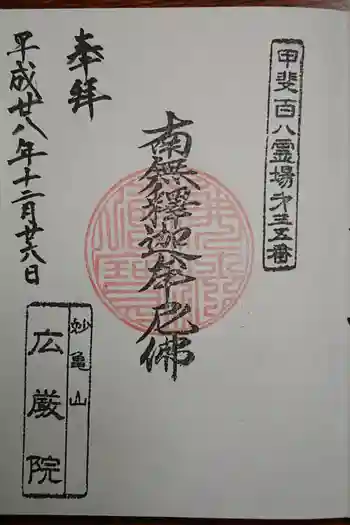 甲斐百八霊場
南無釋迦牟尼佛
奉拝
平成廿八年十二月廿六日
妙亀山
広厳院